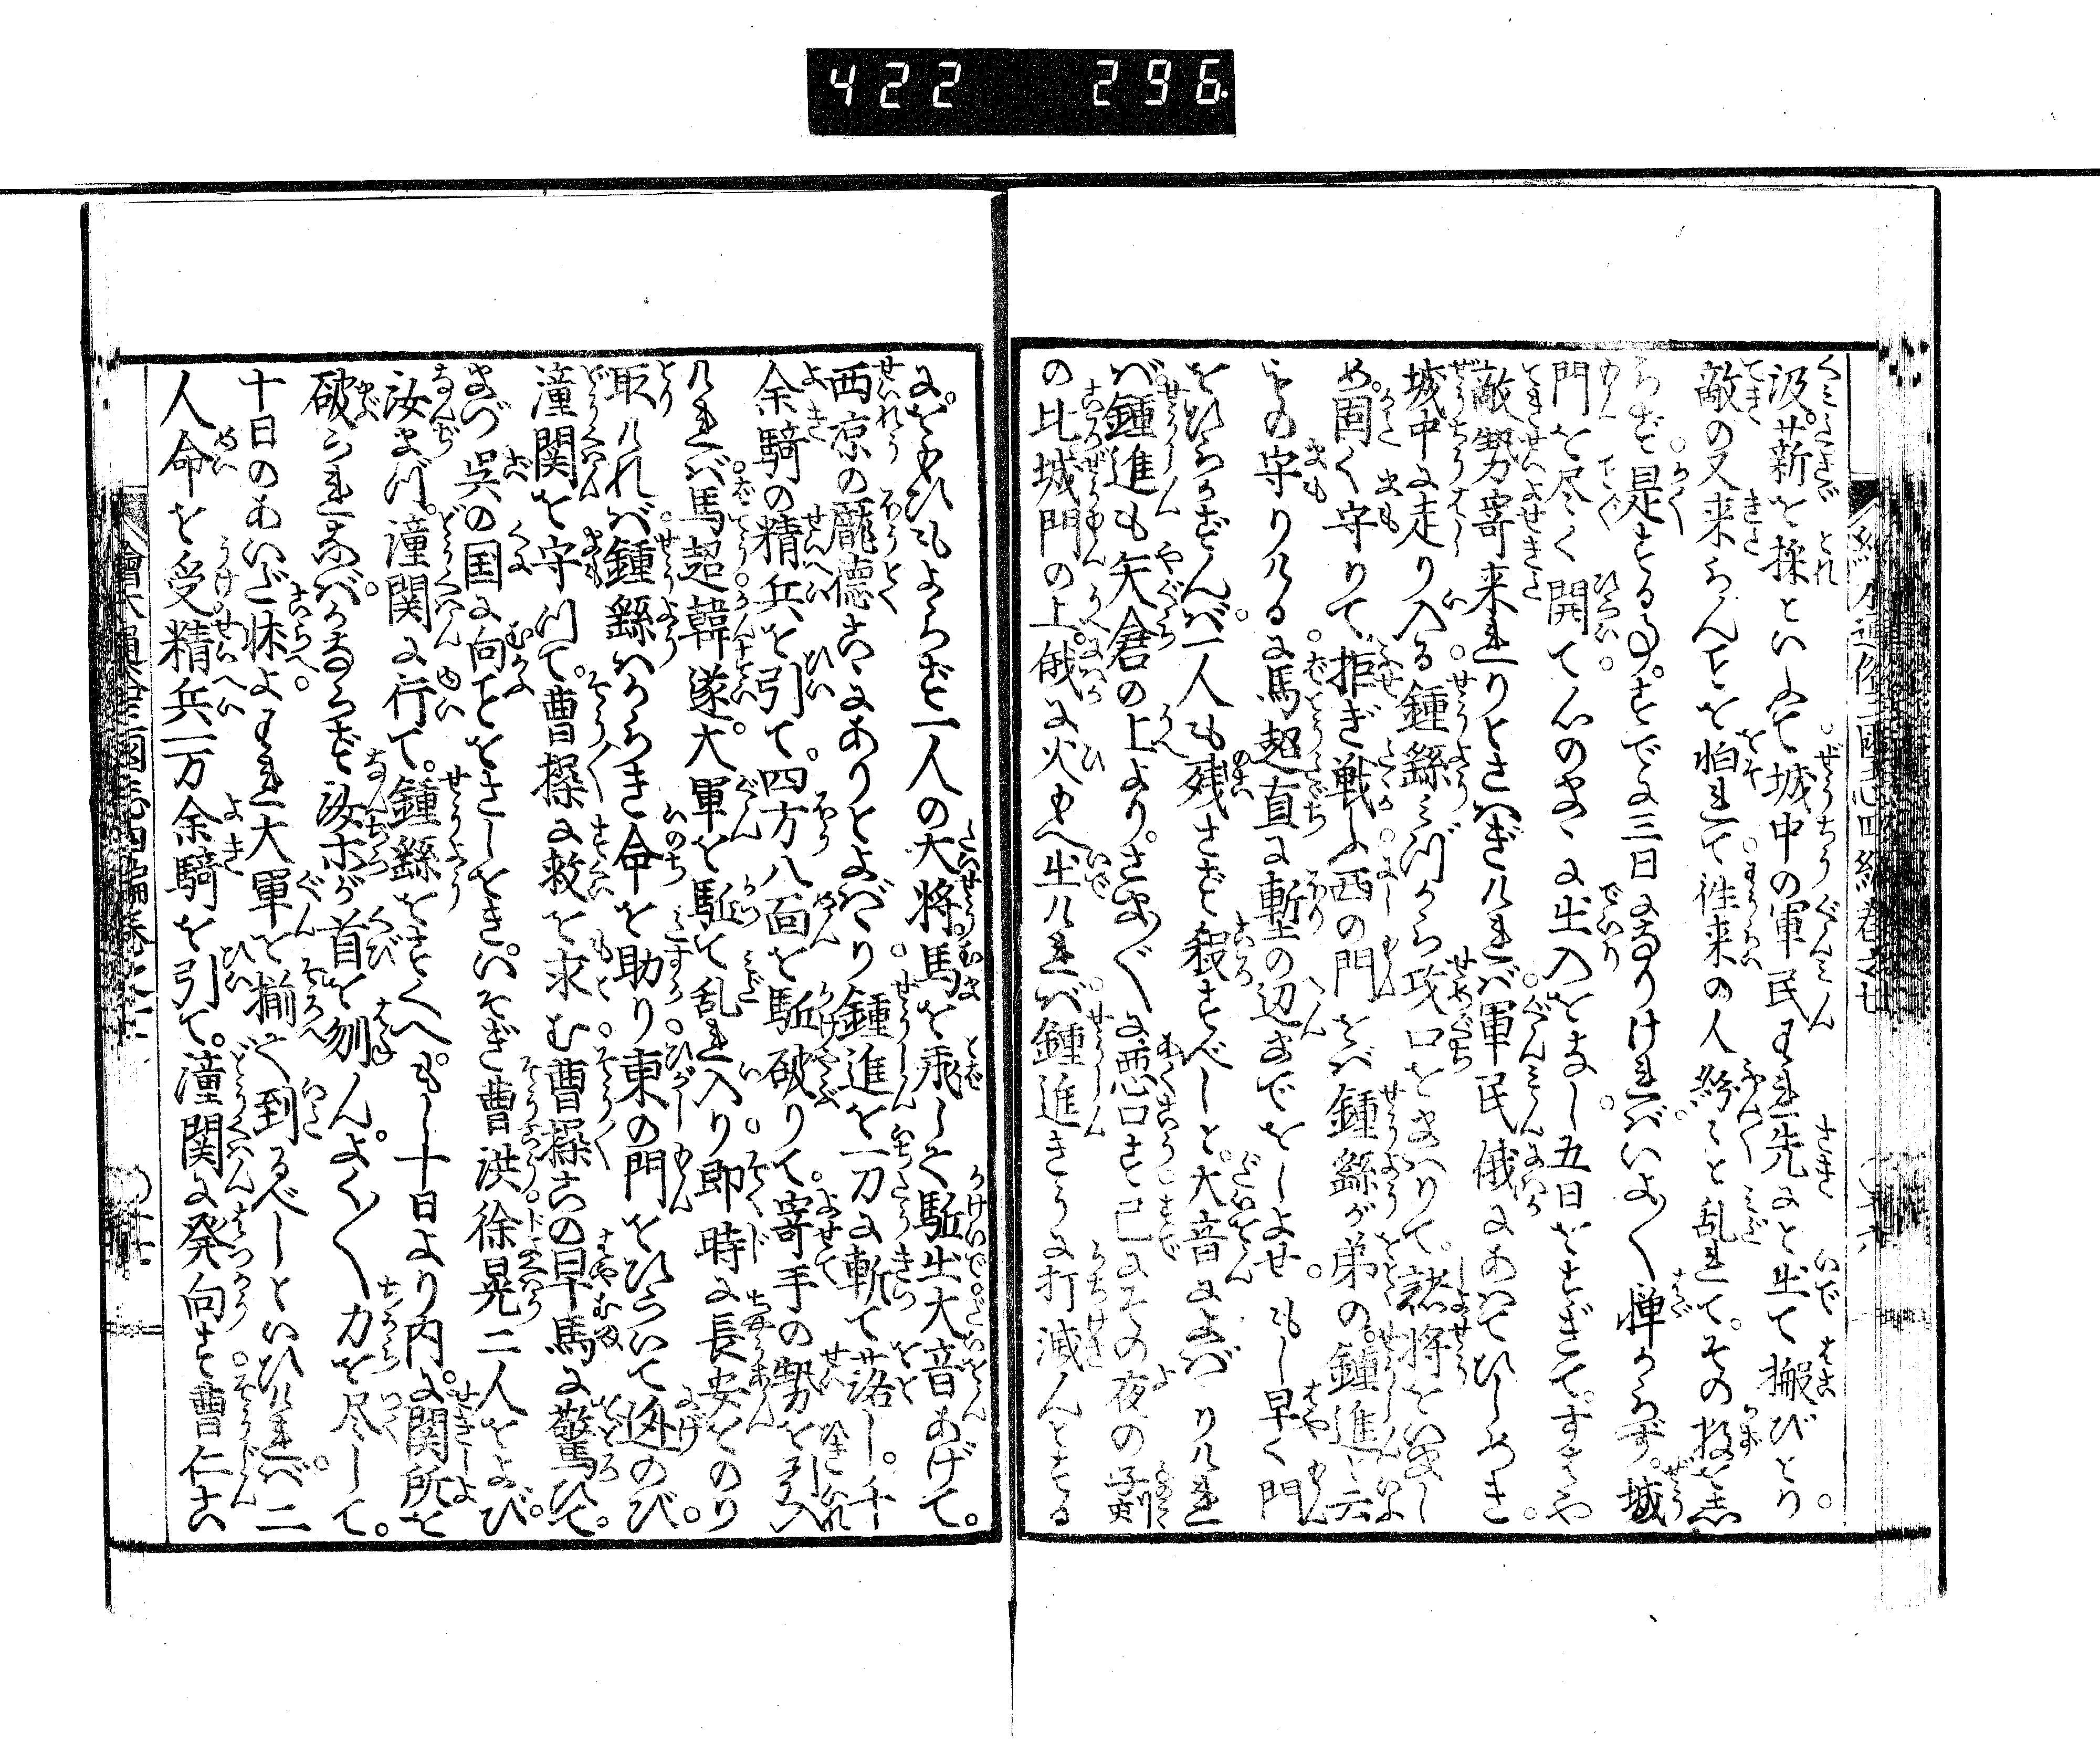 422 296
汲。薪を採といふて城中の軍民われ先にと出て搬びとり
敵の又来らんことを怕れて往来の人紛々と乱れて。その数を志
らず是する事。すでに三日に至りければいよ〳〵憚からず。城
門を尽く開て心のまゝに出入をなし五日をすぎて。すはや
敵勢寄来れりとさわぎければ軍民俄にあはてひしめき
城中に走り入る鍾繇みづから攻口をまはりて。諸将をいまし
め。固く守りて拒ぎ戦ふ西の門をば鍾繇が弟の鍾進と云
ものを守りけるに馬超直に塹の辺までをしよせ。もし早く門
をひらかずんば一人も残さず殺すべしと。大音によばゝりけれ
ば鍾進も矢倉の上より。さま〴〵に悪口す已にその夜の寅刻
の比城門の上。俄に火もへ出ければ鍾進きうに打滅んとする
に。おもひもよらず一人の大将馬を乗して駈出大音あげて。
西凉の龐徳こゝにありとよばゝり鍾進を一刀に斬て落し。千
余騎の精兵を引て。四方八面を駈破りて。寄手の勢を引入
ければ馬超韓遂。大軍を駈て乱れ入り即時に長安をのり
取ければ鍾繇はからき命を助り東の門をひらいて迯のび。
潼関を守つて。曹操に救を求む曹操この早馬に驚ひて。
まづ呉の国に向ことをさしをき。いそぎ曹洪徐晃二人をよび。
汝まづ。潼関に行て。鍾繇をすくへ。もし十日より内。に関所を
破られなば。かならず汝ホが首を刎ん。よく〳〵力を尽して。
十日のあいだ怺よわれ大軍を揃へて到るべしといひければ。二
人命を受精兵一万余騎を引て。潼関に発向す曹仁こ
繪本通俗三國志四編巻之七